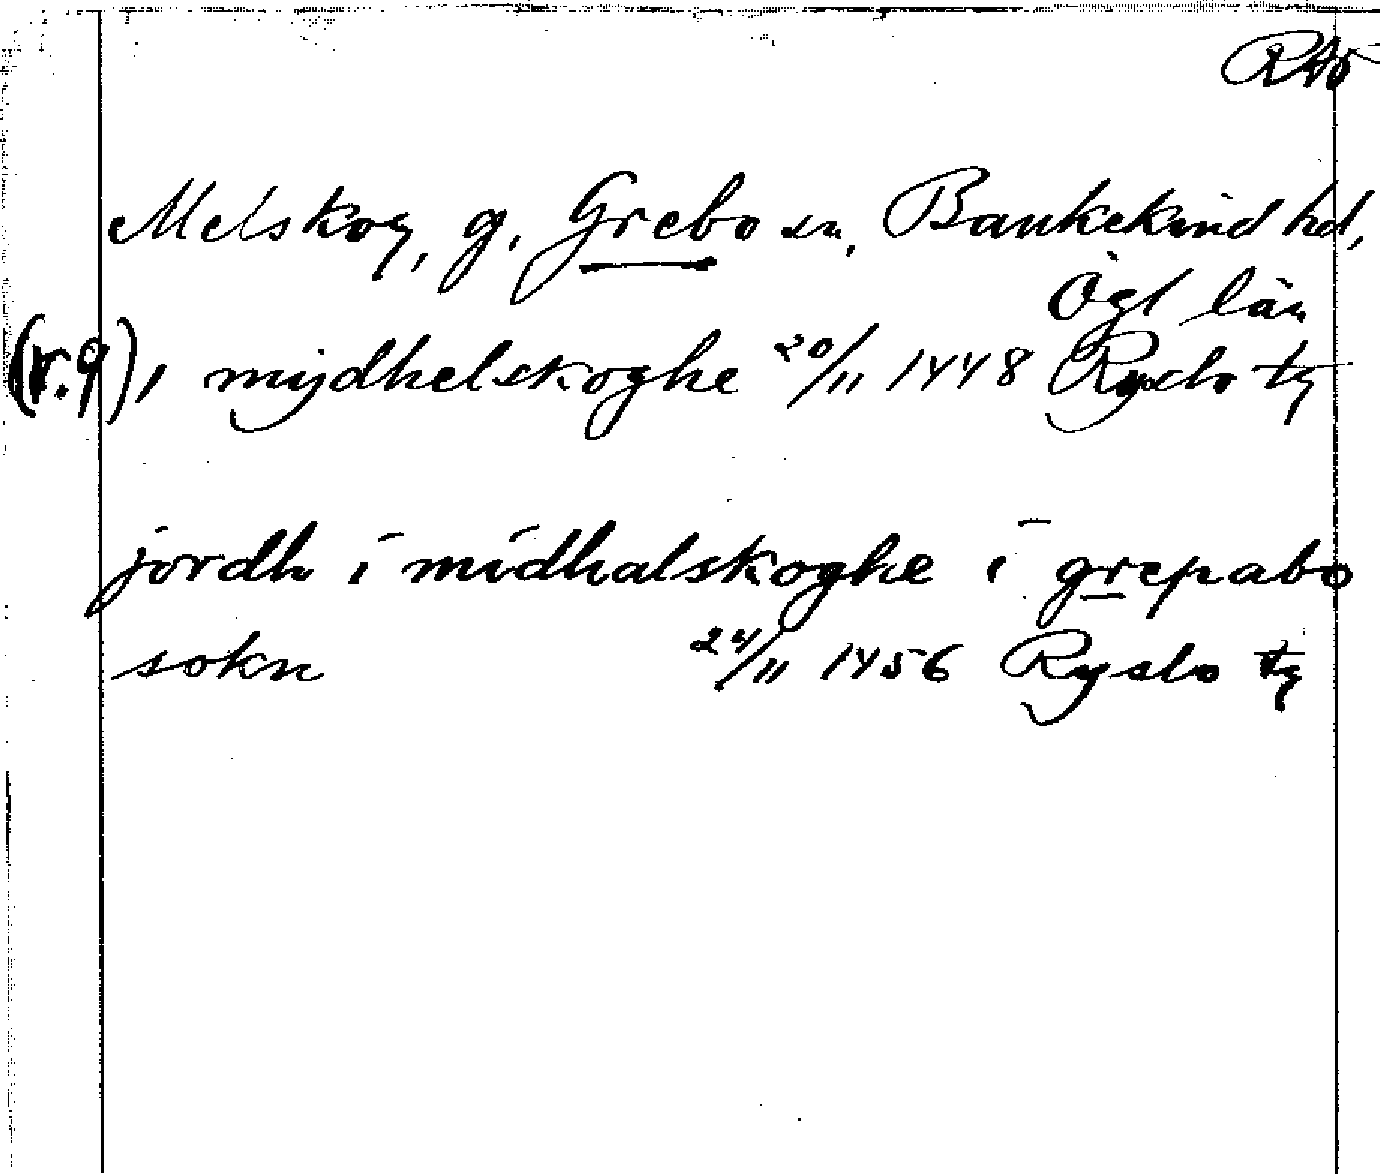 RAÖ
Melskog, g. Grebo sn, Bankekind hd,
Ögl län
(v. 9) i mijdhelskoghe 20/11 1448 Ryslo tg
jordh i midhalskoghe i grepabo
sokn 24/11 1456 Ryslo tg